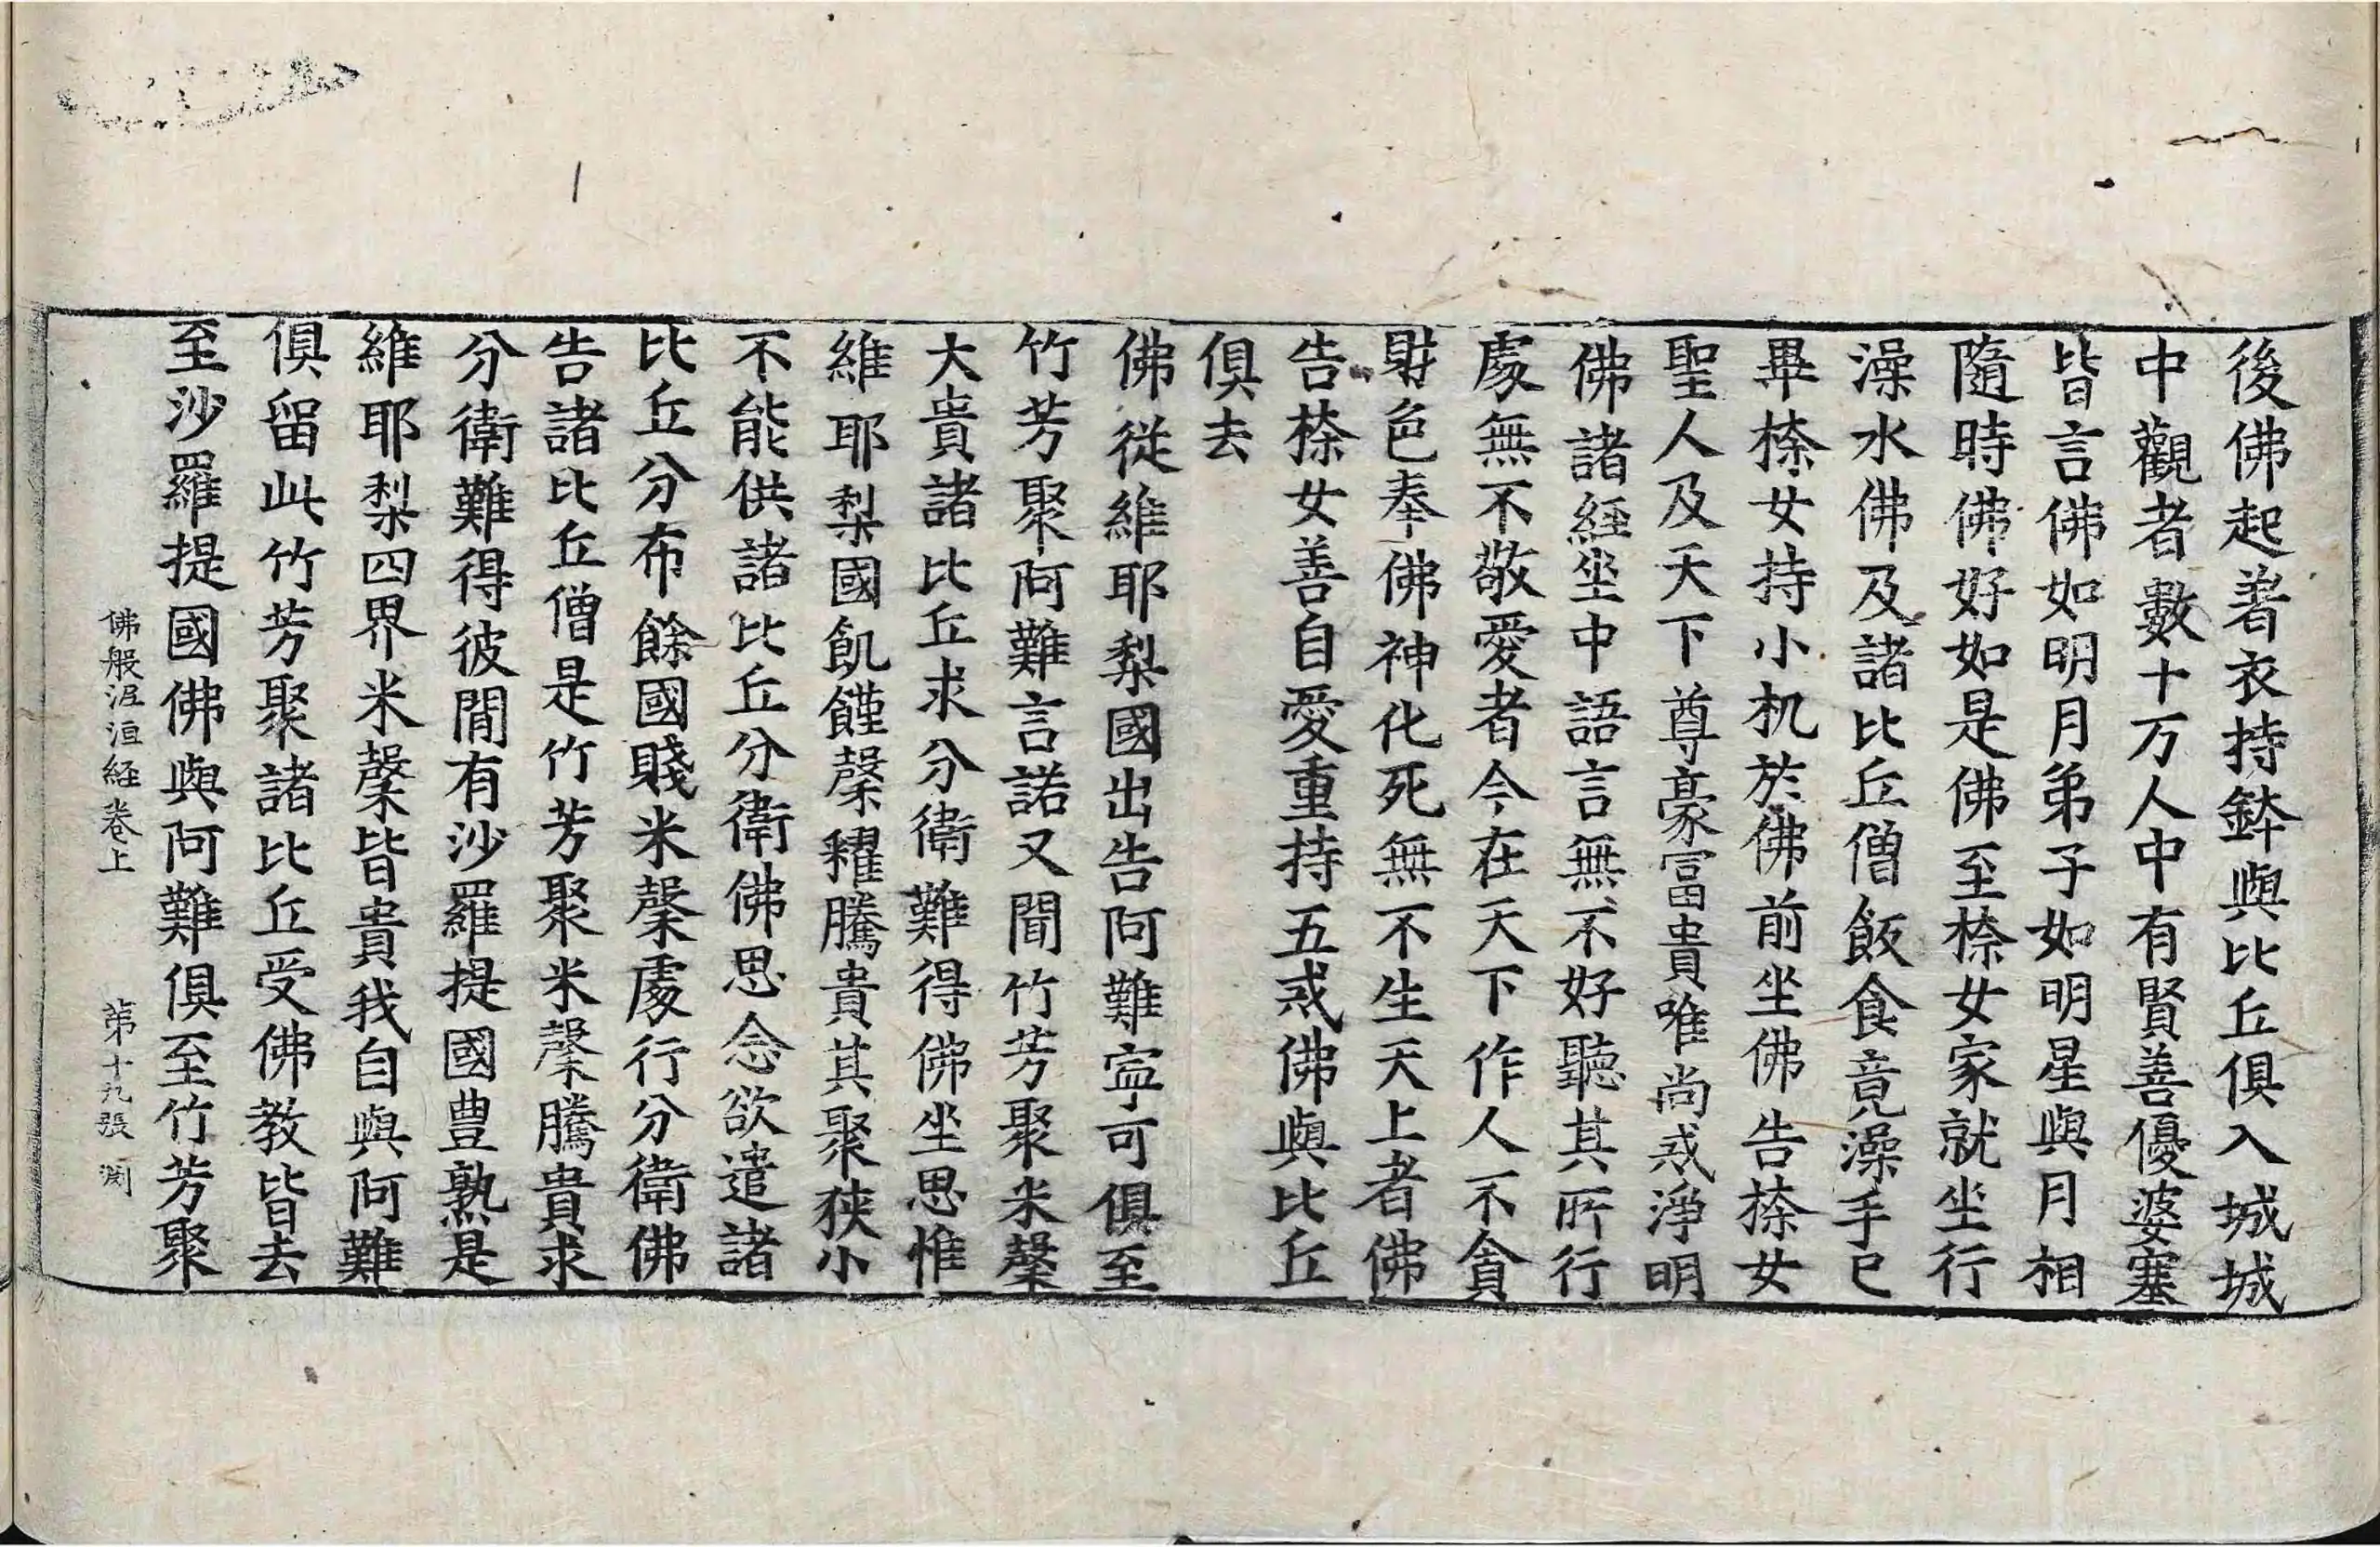 後佛起著衣持鉢與比丘俱入城城
中觀者數十万人中有賢善優婆塞
皆言佛如明月弟子如明星與月相
隨時佛好如是佛至㮈女家就坐行
澡水佛及諸比丘僧飯食竟澡手已
畢㮈女持小机於佛前坐佛告㮈女
聖人及天下尊豪冨貴唯尚戒淨明
佛諸経坐中語言無不好聽其所行
處無不敬愛者今在天下作人不貪
財色奉佛神化死無不生天上者佛
告㮈女善自愛重持五戒佛與比丘
俱去
佛從維耶梨國出告阿難寧可俱至
竹芳聚阿難言諾又聞竹芳聚米糳
大貴諸比丘求分衛難得佛坐思惟
維耶梨國飢饉糳糴騰貴其聚狹小
不能供諸比丘分衛佛思念欲遣諸
比丘分布餘國賤米糳處行分衛佛
告諸比丘僧是竹芳聚米糳騰貴求
分衛難得彼閒有沙羅提國豊熟是
維耶梨四界米糳皆貴我自與阿難
俱留此竹芳聚諸比丘受佛教皆去
至沙羅提國佛與阿難俱至竹芳聚
佛般泥洹経卷上 第十九張 渕